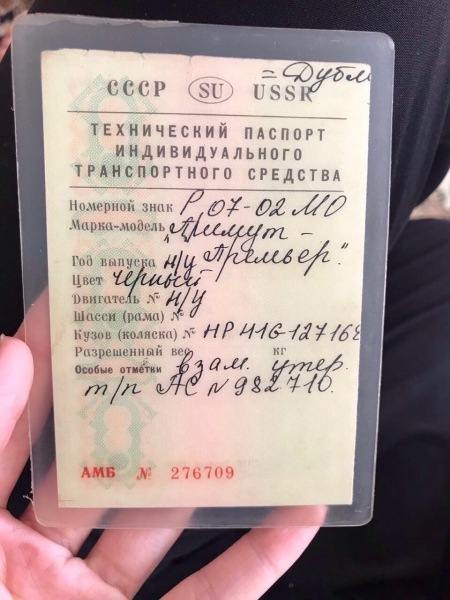 = Дубл
СССР SU USSR
ТЕХНИЧЕСКИЙ ПАСПОРТ
ИНДИВИДУАЛЬНОГО
ТРАНСПОРТНОГО СРЕДСТВА
Номерной знак Р 07-02 МО
Марка-модель "Плимут -
Год выпуска н/у Премьер".
Цвет Черный
Двигатель № н/у
Шасси (рама) №
Кузов (коляска) № НР 41G 127168
Разрешенный вес кг
Особые отметки взам. утер.
т/п АС N 982710.
АМБ № 276709